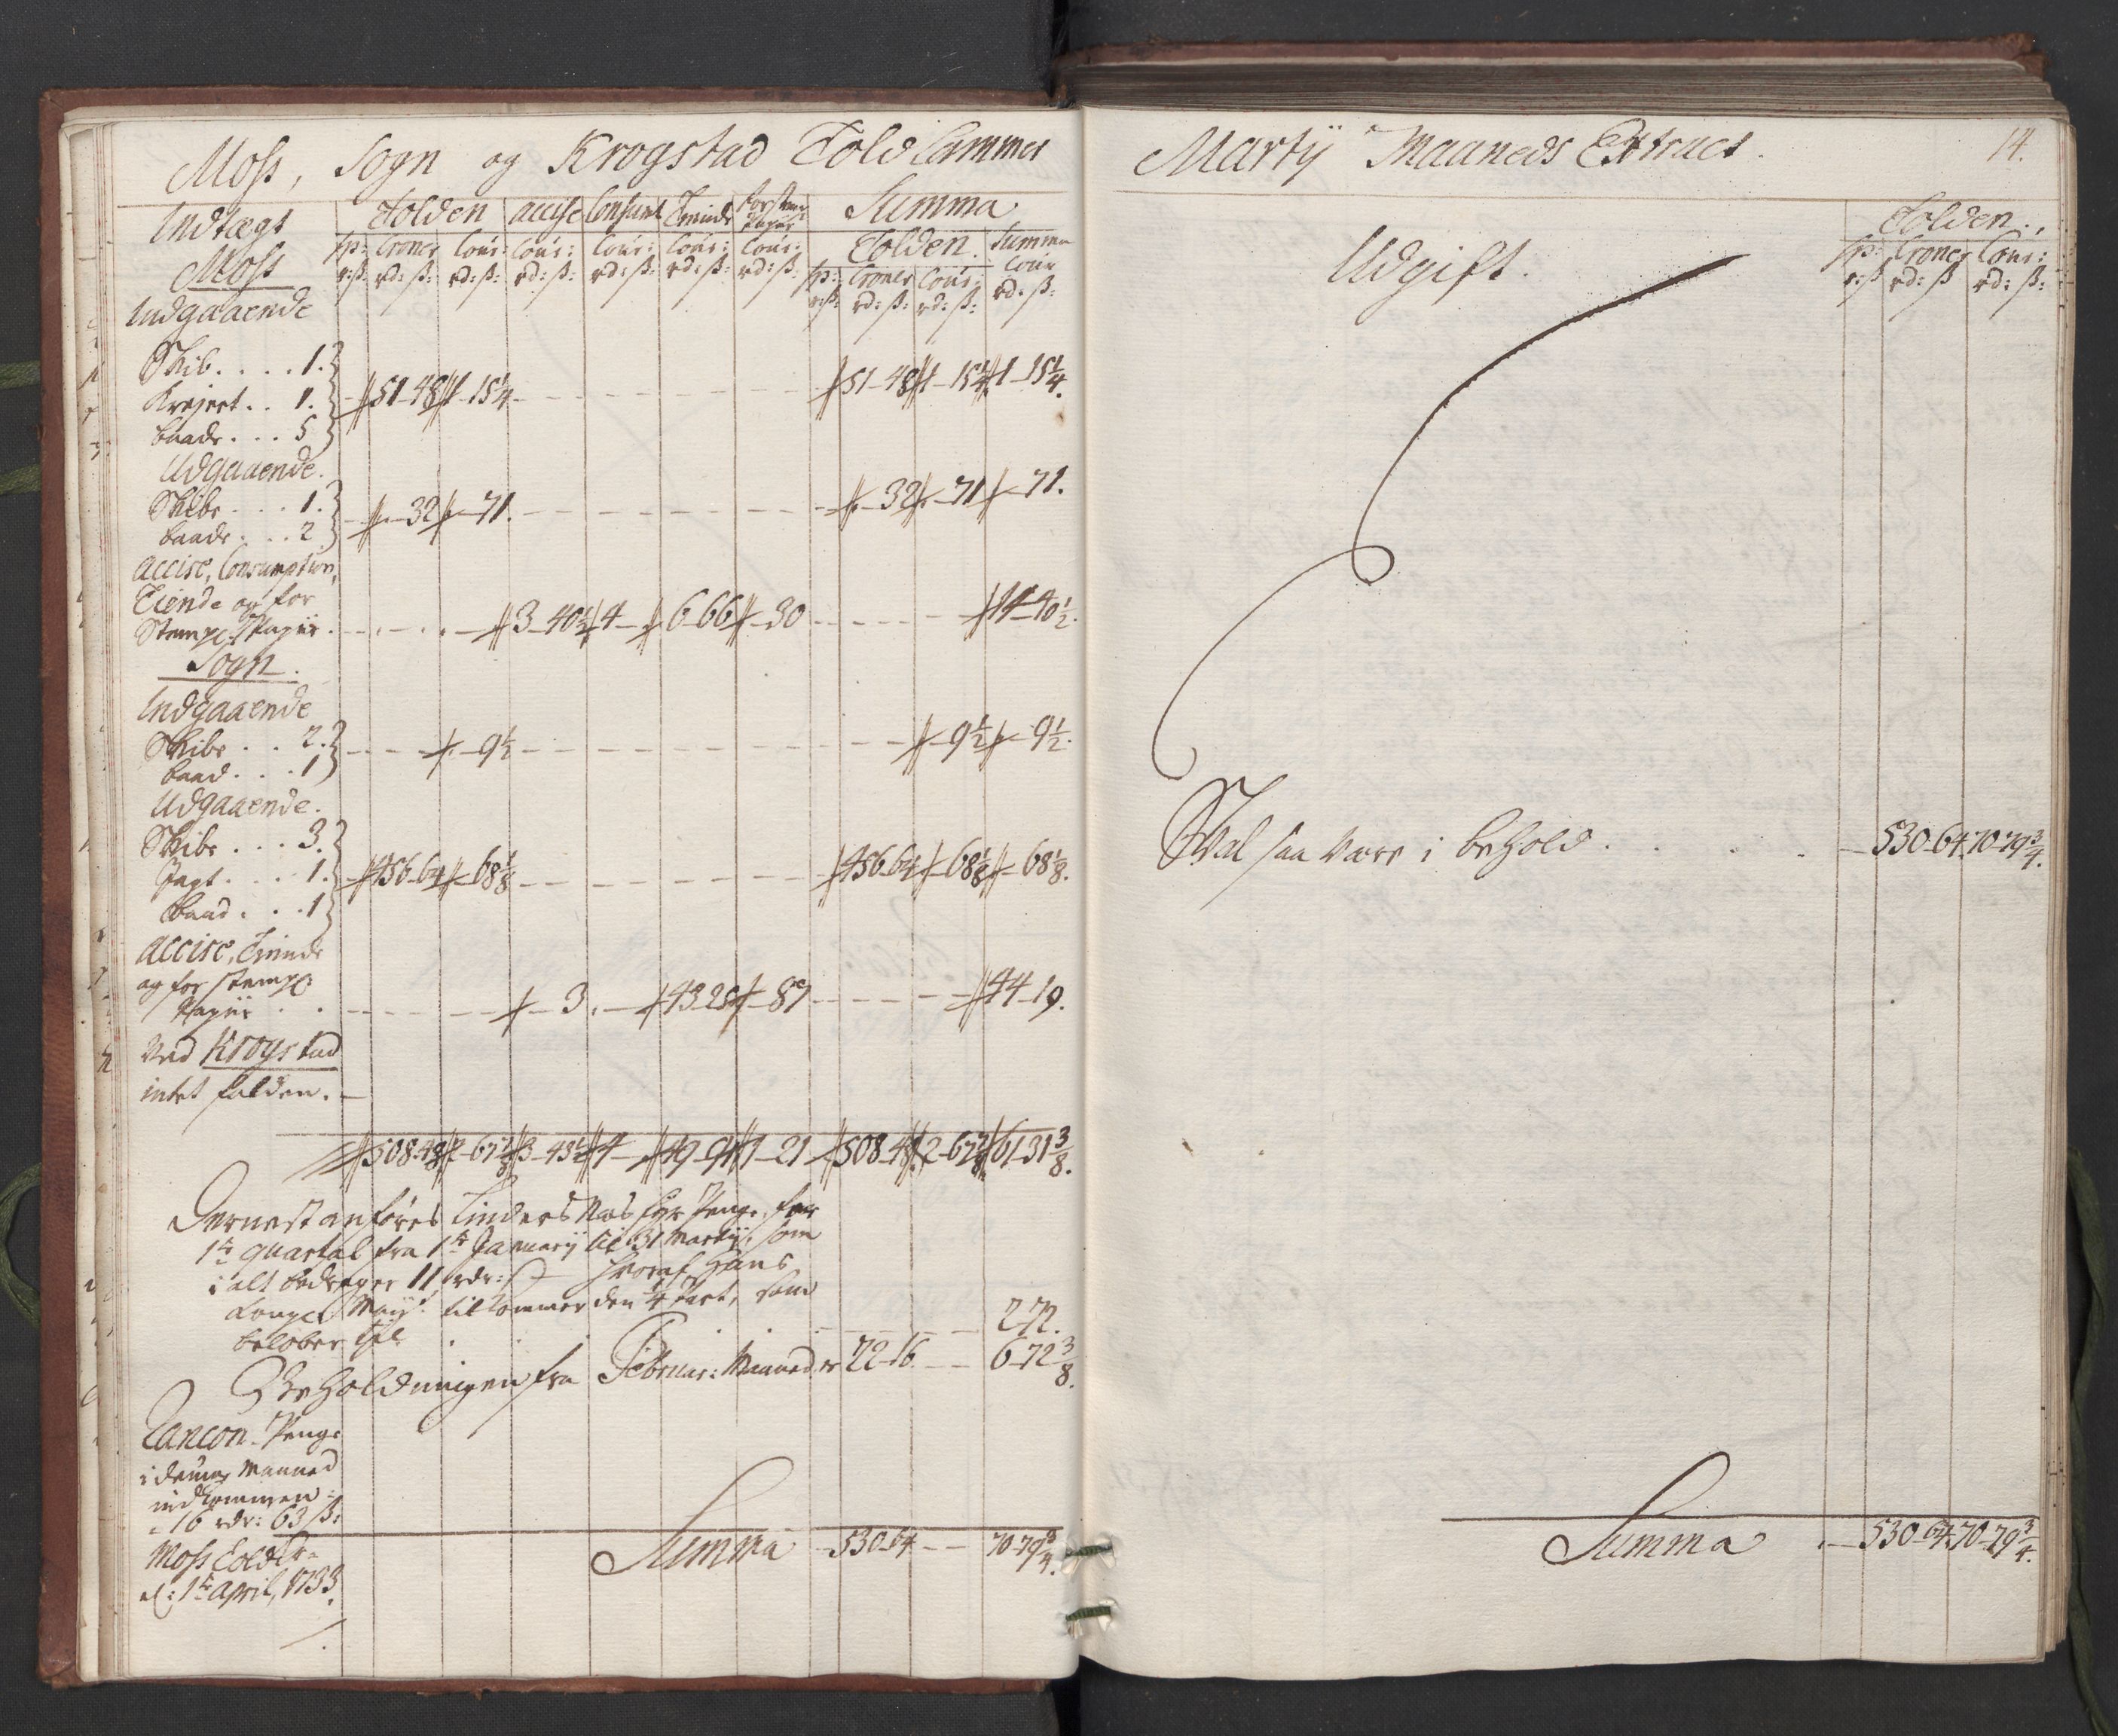 Moss, Sogn og Krogstad Told Cammer
Indtægt Tolden accise Consumt Tiende for Stempl Papiir Summa
Moss
Sp: Croner Cour: Cour: Cour: Cour: Cour: Tolden. Summa
r:ß: rd:ß: rd:ß: rd:ß: rd:ß: rd:ß: rd:ß: Sp: Croner Cour: Cour
r:ß: rd:ß: rd:ß: rd:ß:
Indgaaende
Skib . . . . 1.
Krejert . . 1. 51-48 1-15¼ 51-48 1-15¼ 1-15¼.
baade . . . 5
Udgaaende.
Skibe . . . 1. -32 -71. -32 -71 -71.
baade . . . 2
accise, Consumption,
Tiende og for
Stempl. Papiir. 3-40½ 4- 6-66 -30 14-40½.
Sogn.
Indgaaende
Skibe . . 2. -9½ -9½ -9½.
baad . . . 1
Udgaaende.
Skibe . . . 3.
Jagt . . . 1. 456-64 -68⅛ 456-64 -68⅛ -68⅛.
Baad . . . 1
accise, Tiende
og for stempl
Papiir . . -3. 43-25 -87 44-19.
Ved Krogstad
intet falden.
508-48 2-67⅞ 3-43½ 4- 49-91 1-21 508-48 2-67⅞ 61-31⅜.
Dernest anføres Fyr Penge for
1te quartal fra 1te January til 31 Martij, som
i alt bedrager 11 rdr: hvoraf Hans
Kongel. May: tilkommer den ¼ part, som
beløber til . . . . 2-72.
Beholdningen fra Februar: Maaneder 22-16. 6-72⅜.
Rancon-Penge
i denne Maaned
indkommen
16 rdr: 63 ß:
Summa 530-64 70-79¾.
Moss Told
d: 1te April, 1733.
Martij Maaneds Extract. 14.
Udgift. Tolden.
Sp: Croner Cour:
r:ß rd:ß rd:ß:
Skal saa være i behold . . . . 530-64. 70-79¾.
Summa 530-64. 70-79¾.